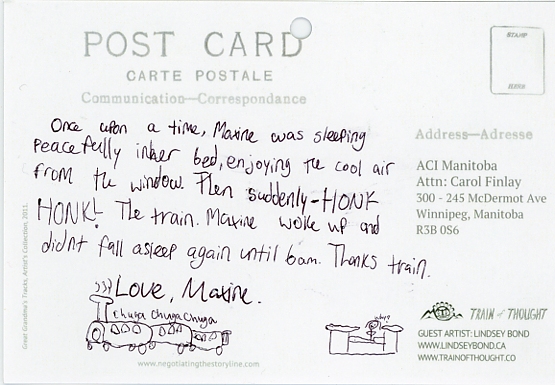 POST CARD
CARTE POSTALE
Communication—Correspondance
STAMP
Once upon a time, Maxine was sleeping
peacefully in her bed, enjoying the cool air
from the window. Then suddenly - HONK
HONK! The train. Maxine woke up and
didnt fall asleep again until 6am. Thanks train.
Love, Maxine.
chuga chuga chuga
why?
Address—Adresse
ACI Manitoba
Attn: Carol Finlay
300 - 245 McDermot Ave
Winnipeg, Manitoba
R3B 0S6
TRAIN of THOUGHT
GUEST ARTIST: LINDSEY BOND
WWW.LINDSEYBOND.CA
WWW.TRAINOFTHOUGHT.CO
www.negotiatingthestoryline.com
Great Grandma's Tracks, Artist's Collection, 2011.